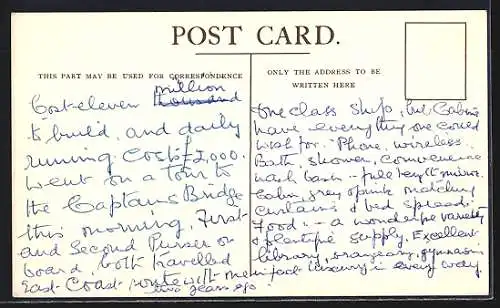 POST CARD.
THIS PART MAY BE USED FOR CORRESPONDENCE
million
Cost eleven thousand
to build, and daily
running costs £2,000.
went on a tour to
the Captains Bridge
this morning. First
and Second Purser on
board, both travelled
East Coast route with me
two years ago.
ONLY THE ADDRESS TO BE
WRITTEN HERE
one class ship, but Cabins
have everything one could
wish for. 'Phone, wireless,
Bath shower, convenience
wash basin - full length mirror.
Calm, grey & pink matching
curtains & bed spreads.
Food - a wonderful variety
& plentiful supply. Excellent
library, orangeary, gymnasium
in fact luxury in every way.